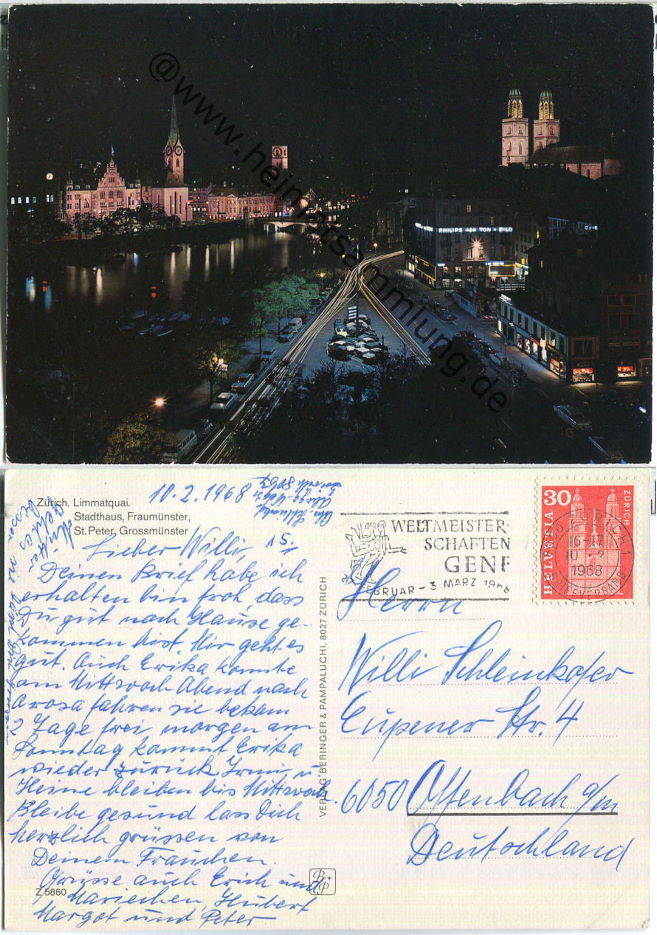 @www.heimatsammlung.de
PHILIPS
Zürich. Limmatquai.
Stadthaus, Fraumünster,
St. Peter, Grossmünster
10.2.1968
Lieber Willi,
Deinen Brief habe ich
erhalten bin froh dass
Du gut nach Hause ge-
kommen bist. Mir geht es
gut. Auch Erika konnte
am Mittwoch Abend nach
Arosa fahren sie bekam
2 Tage frei, morgen am
Sonntag kommt Erika
wieder zurück Irmi u
Heine bleiben bis Mittwoch
Bleibe gesund lass Dich
herzlich grüssen von
Deinem Frauchen.
Grüsse auch Erich und
Mariechen, Hubert
Margot und Peter
Z 5860
VERLAG BERINGER & PAMPALUCHI, 8027 ZÜRICH
WELTMEISTER-
SCHAFTEN
GENF
FEBRUAR - 3 MÄRZ 1968
30
HELVETIA
ZÜRICH
16-17
10.-2
1968
Herrn
Willi Schleinkofer
Eupener Str. 4
6050 Offenbach a/m
Deutschland